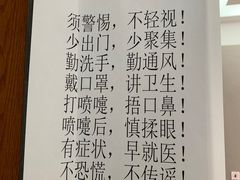 须警惕，不轻视！
少出门，少聚集！
勤洗手，勤通风！
戴口罩，讲卫生！
打喷嚏，捂口鼻！
喷嚏后，慎揉眼！
有症状，早就医！
不恐慌，不传谣！